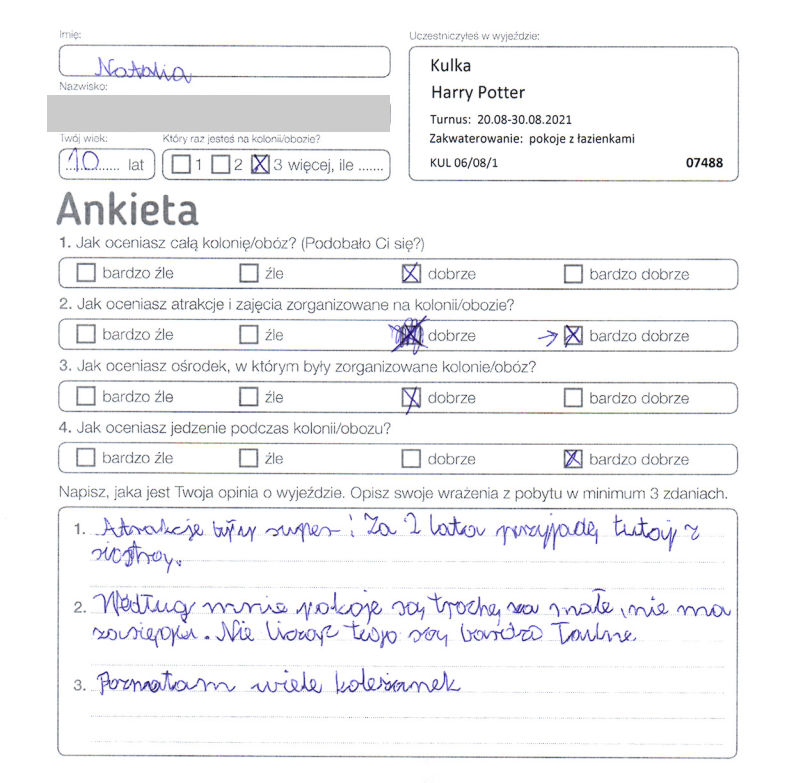 Imię:
Natalia
Nazwisko:
Twój wiek:
10 lat
Który raz jesteś na kolonii/obozie?
1 2 3 więcej, ile .......
Uczestniczyłeś w wyjeździe:
Kulka
Harry Potter
Turnus: 20.08-30.08.2021
Zakwaterowanie: pokoje z łazienkami
KUL 06/08/1 07488
Ankieta
1. Jak oceniasz całą kolonię/obóz? (Podobało Ci się?)
bardzo źle źle dobrze bardzo dobrze
2. Jak oceniasz atrakcje i zajęcia zorganizowane na kolonii/obozie?
bardzo źle źle dobrze bardzo dobrze
3. Jak oceniasz ośrodek, w którym były zorganizowane kolonie/obóz?
bardzo źle źle dobrze bardzo dobrze
4. Jak oceniasz jedzenie podczas kolonii/obozu?
bardzo źle źle dobrze bardzo dobrze
Napisz, jaka jest Twoja opinia o wyjeździe. Opisz swoje wrażenia z pobytu w minimum 3 zdaniach.
1. Atrakcje były super! Za 2 lata przyjadę tutaj z
siostrą.
2. Według mnie pokoje są trochę za małe, nie ma
zasięgu. Nie licząc tego są bardzo ładne
3. Poznałam wiele koleżanek